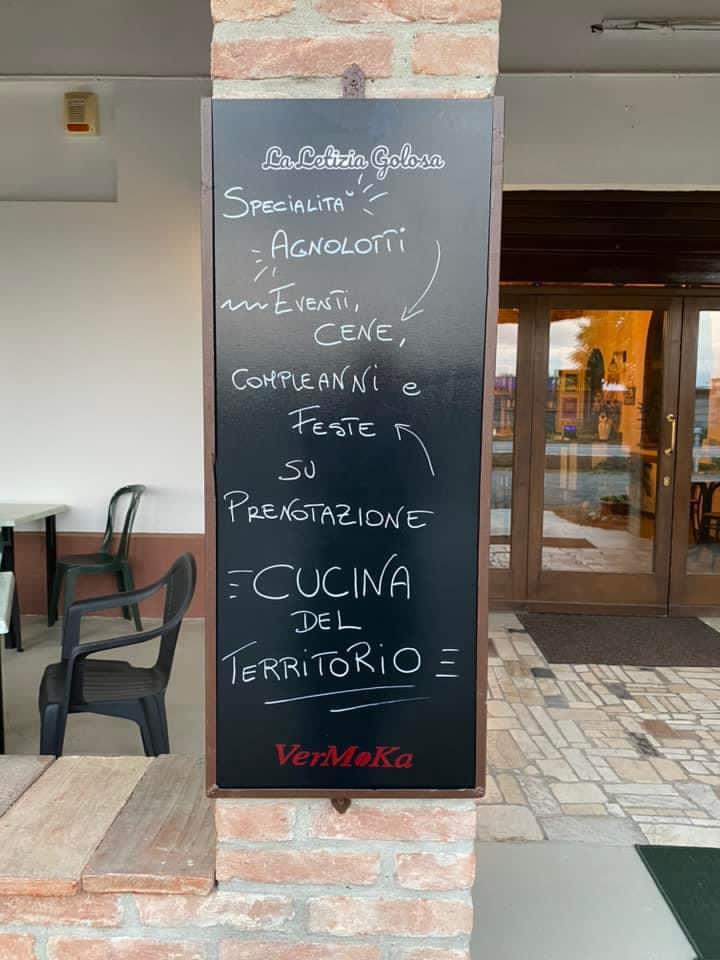 La Letizia Golosa
SPECIALITA'
AGNOLOTTI
EVENTI,
CENE,
COMPLEANNI e
FESTE
SU
PRENOTAZIONE
CUCINA
DEL
TERRITORIO
VerMoKa